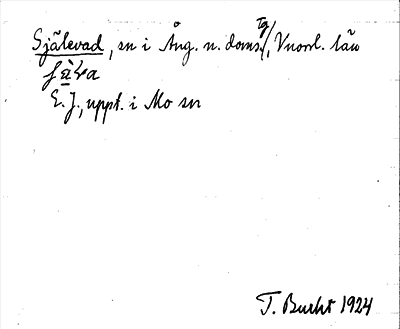 Själevad, sn i Ång. n. doms.tg, Vnorrl. län
E. J., uppt. i Mo sn
T. Bucht 1924